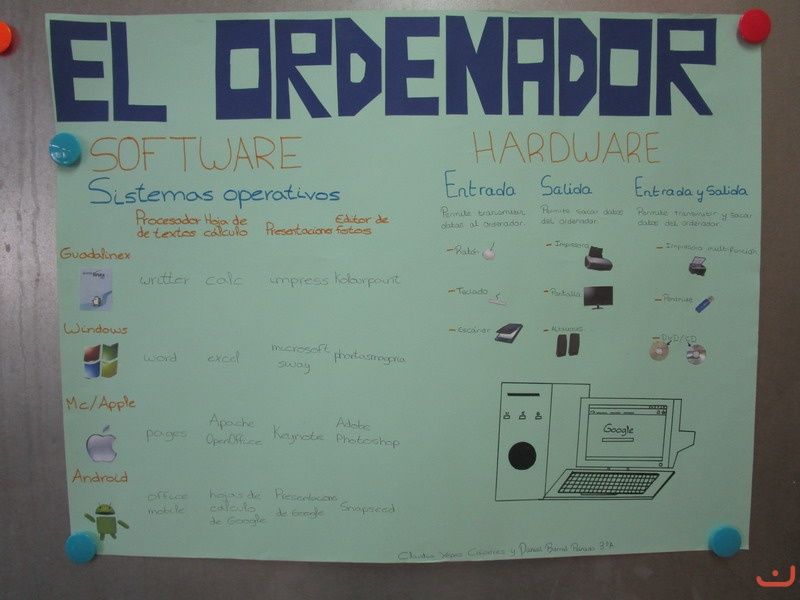 EL ORDENADOR
SOFTWARE
Sistemas operativos
Procesador de textos
Hoja de cálculo
Presentacione
Editor de fotos
Guadalinex
writter calc impress kolourpaint
Windows
word excel microsoft sway phantasmagoria
Mc/Apple
pages Apache OpenOffice Keynote Adobe Photoshop
Android
office mobile
hojas de cálculo de Google
Presentacione de Google
Snapseed
HARDWARE
Entrada
Permite transmitir datos al ordenador.
- Ratón
- Teclado
- escáner
Salida
Permite sacar datos del ordenador.
- Impresora
- Pantalla
- Altavoces
Entrada y Salida
Permite transmitir y sacar datos del ordenador.
- Impresora multifunción
- Pendrive
- DVD/CD
Google
Claudia y Daniel 3ºA